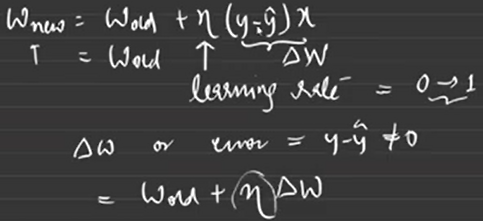 Wnew = Wold + η (y-ŷ) x
↑ = Wold ↑ ΔW
learning rate = 0→1
ΔW or error = y-ŷ ≠0
= Wold + η ΔW